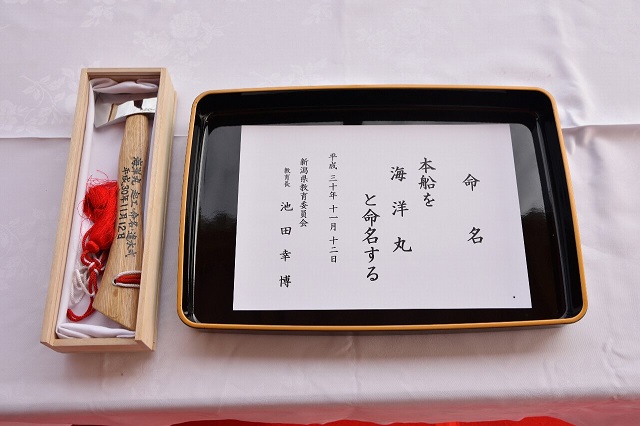 命名
本船を
海洋丸
と命名する
平成三十年十一月十二日
新潟県教育委員会
教育長 池田幸博
平成30年11月12日